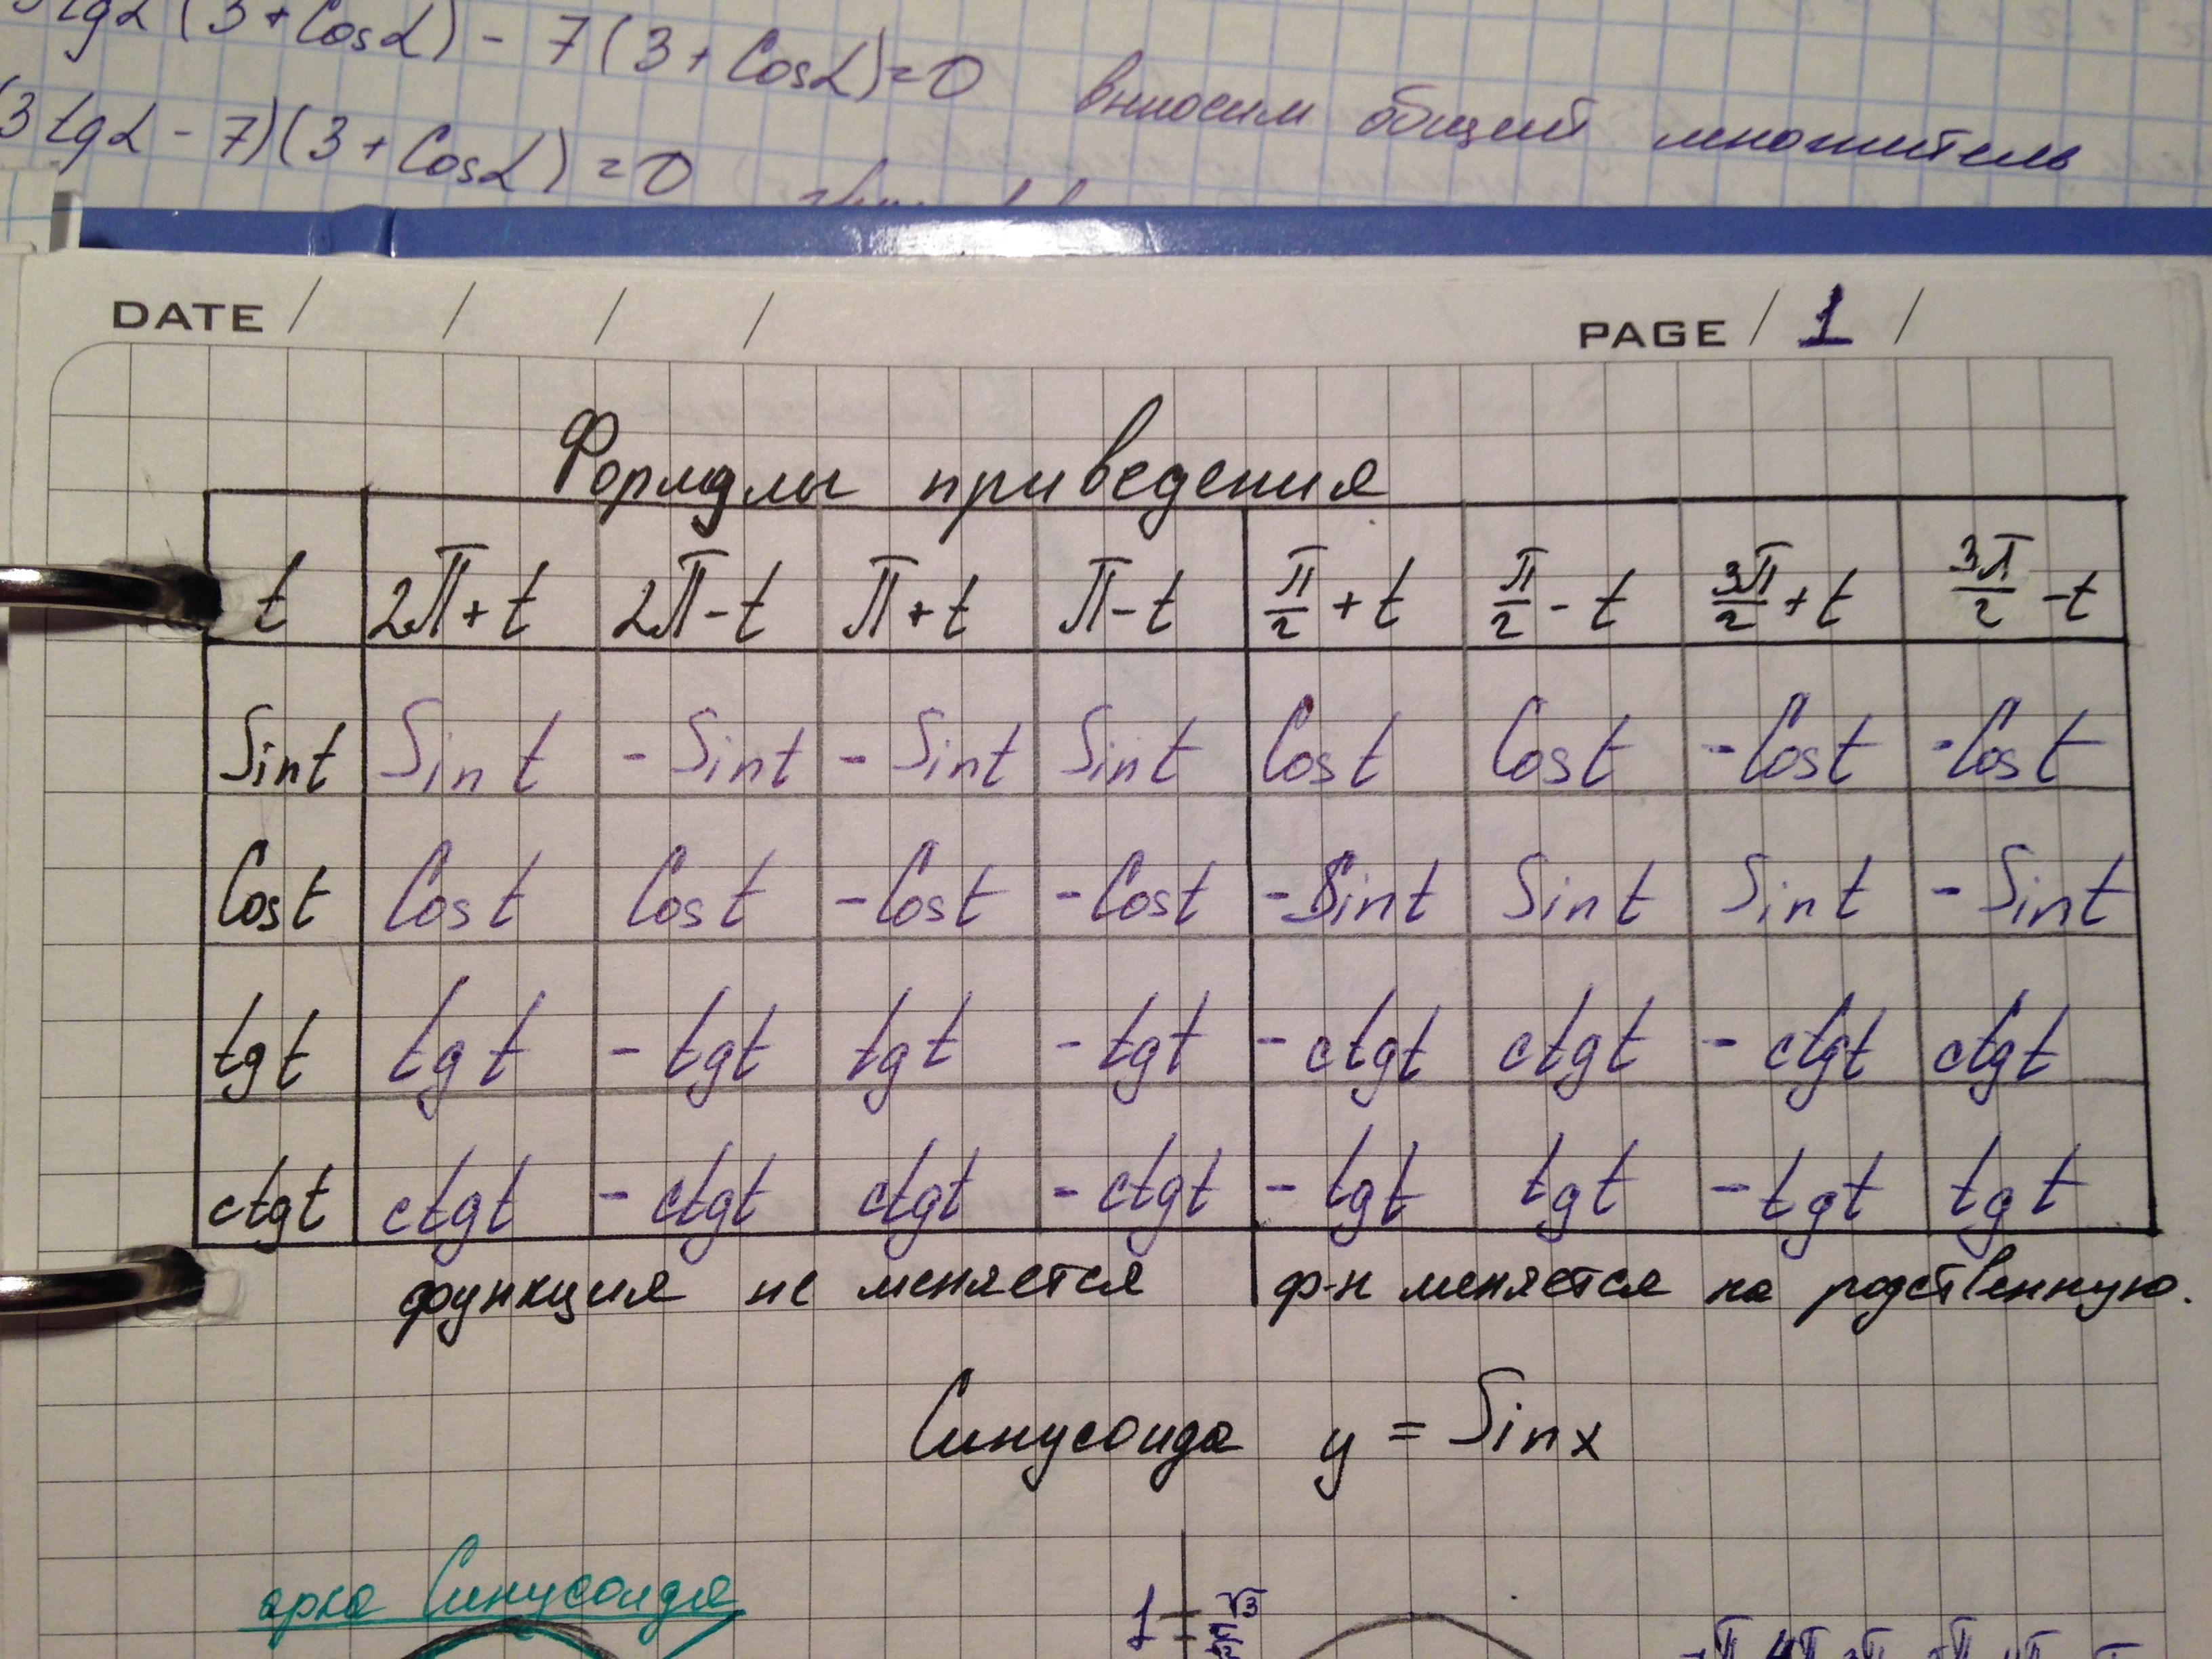 tgα(3+Cosα) - 7(3+Cosα)=0 выносим общий множитель
(3tgα - 7)(3+Cosα)=0
DATE / / / / PAGE / 1 /
Формулы приведения
t 2π+t 2π-t π+t π-t π/2+t π/2-t 3π/2+t 3π/2-t
Sint Sint -Sint -Sint Sint Cost Cost -Cost -Cost
Cost Cost Cost -Cost -Cost -Sint Sint Sint -Sint
tgt tgt -tgt tgt -tgt -ctgt ctgt -ctgt ctgt
ctgt ctgt -ctgt ctgt -ctgt -tgt tgt -tgt tgt
функция не меняется ф-н меняется на родственную.
Синусоида y = Sinx
арка Синусоида
1 √3